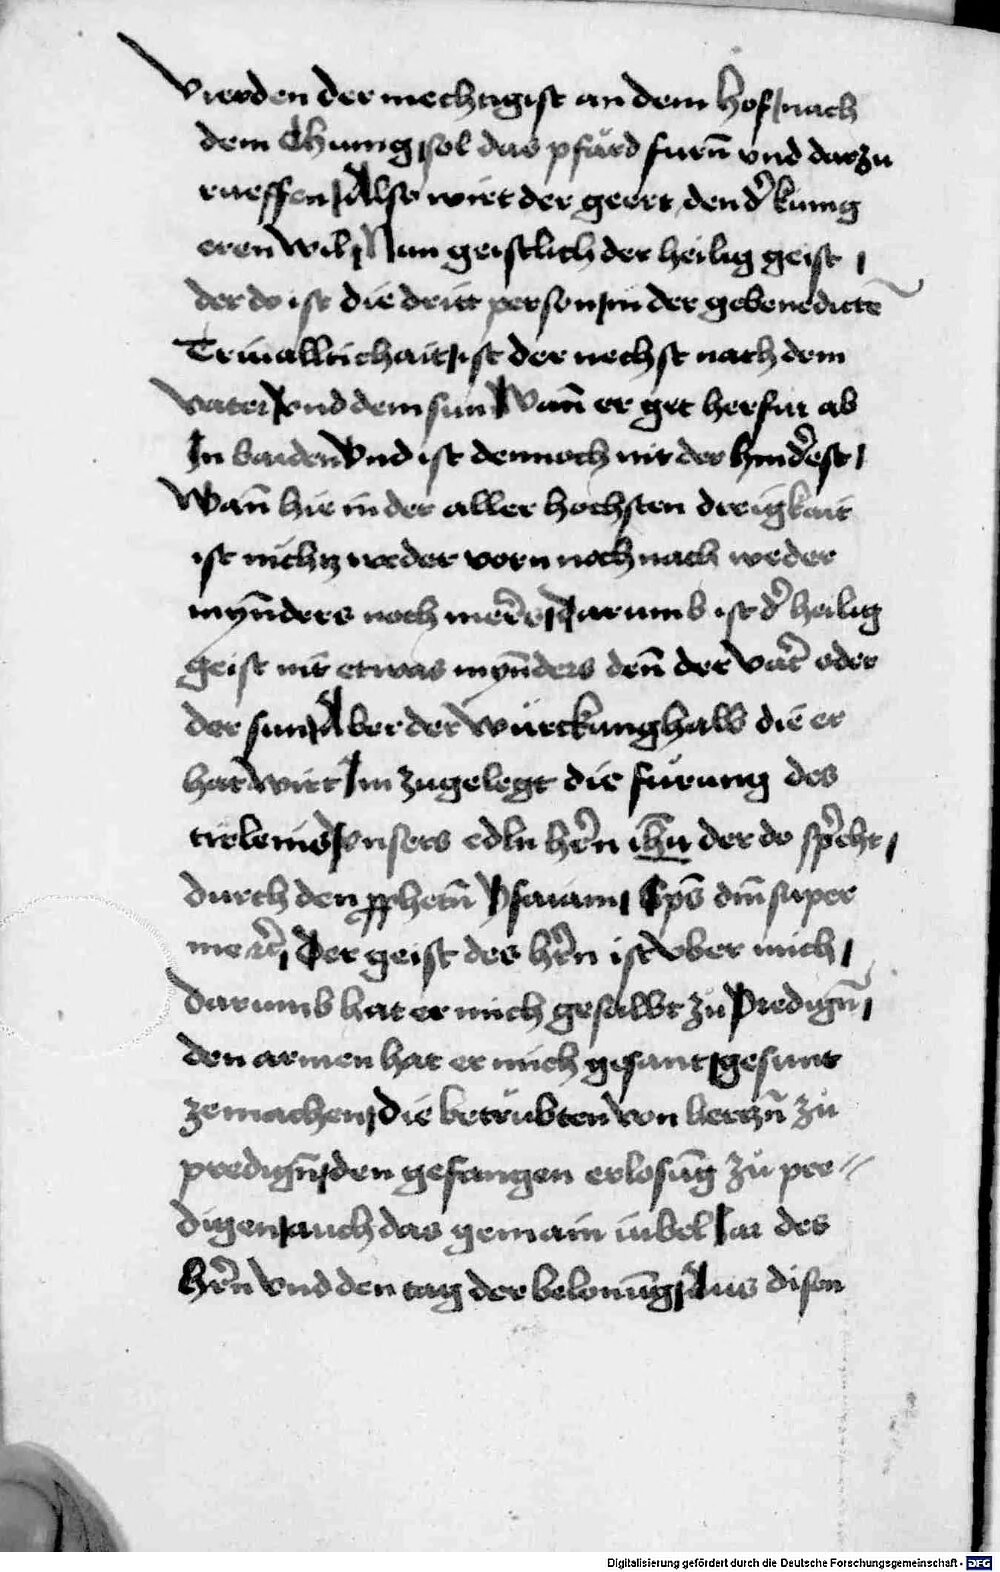 vierden der mechtigist an dem hof / nach
dem Chunig / sol das pfärd furn̄ vnd darzu
rueffen / Also wirt der geert / den d' kunig
eren wil / Nun geistlich der heilig geist /
der do ist die dritt person / in der gebenedictē
Triualltichait / ist der nechst nach dem
vater / vnd dem sun / Wann̄ er get herfur ab
In baiden / Vnd ist dennoch nit der hind'est /
Wan̄ hie in der aller hochsten dreigkait
ist nichtz weder vorn noch nach weder
myn̄ders noch mer's / Darumb ist d' heilig
geist nit etwas myn̄ders den̄ der vat' oder
der sun / Aber der würckung halb die er
hat / wirt Im zugelegt die fürung des
vnsers edln h'rn ih̄u der do sp'cht /
durch den pp̄hetn̄ Ysaiam / Sp̄s dm̄ super
me ⁊c' / Der geist des h'rn ist vber mich /
darumb hat er mich gesalbt zů Predign̄ /
den armen hat er mich gesant / gesunt
zemachen / die betrübten von hertzn̄ zů
predign̄ / den gefangen erlosūg zů pre=
digen / auch das gemain iubel Iar des
h'rn / vnd den tag der belonūg / Aus disen
Digitalisierung gefördert durch die Deutsche Forschungsgemeinschaft - DFG